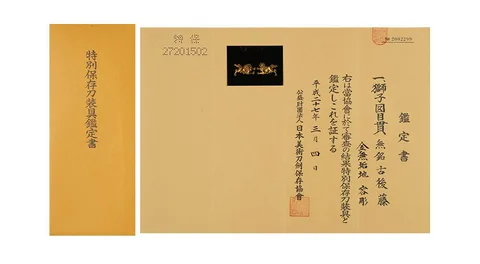 特別保存刀装具鑑定書
特保
27201502
鑑定書
一、獅子図目貫 無銘 古後藤
金無垢地 容彫
右は當協會に於て審査の結果特別保存刀装具と
鑑定しこれを証する
平成二十七年三月四日
公益財団法人日本美術刀剣保存協會